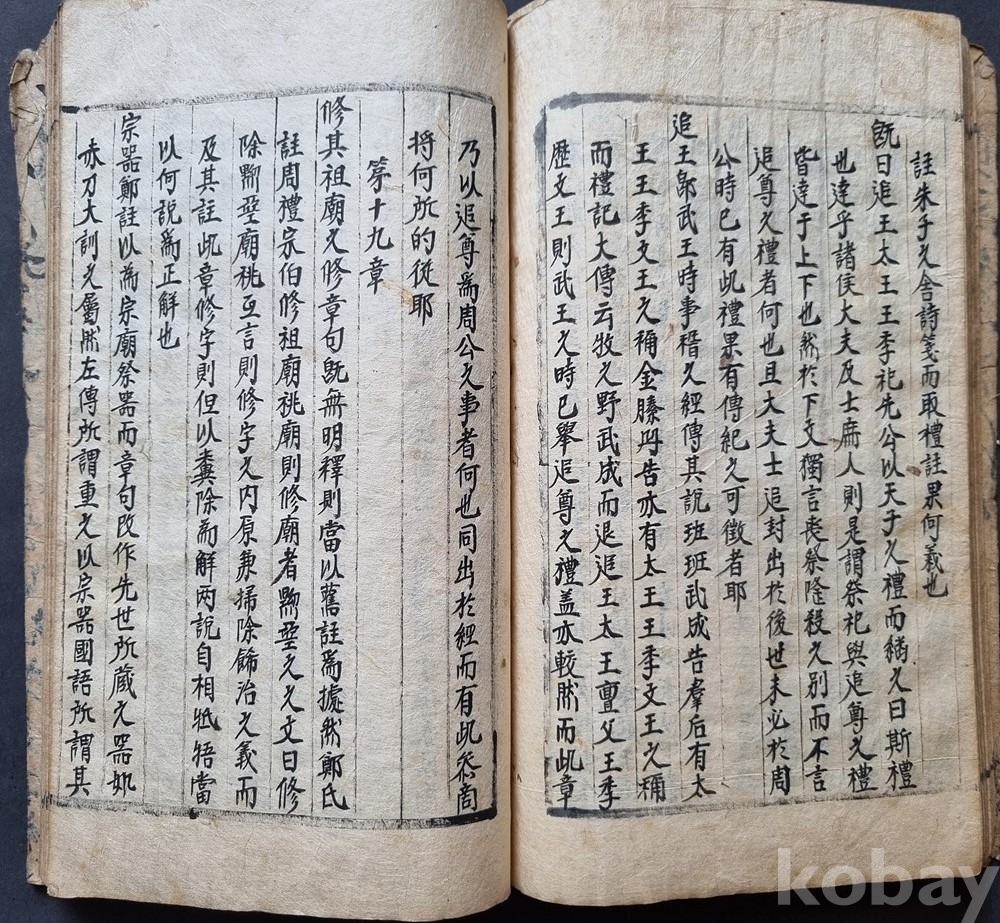 註朱子之舍詩箋而取禮註果何義也
旣曰追王太王王季祀先公以天子之禮而繼之曰斯禮
也達乎諸侯大夫及士庶人則是謂祭祀與追尊之禮
皆達于上下也然於下文獨言喪祭隆殺之別而不言
追尊之禮者何也且大夫士追封出於後世未必於周
公時已有此禮果有傳紀之可徵者耶
追王卽武王時事稽之經傳其說班班武成告羣后有太
王王季文王之稱金縢冊告亦有太王王季文王之稱
而禮記大傳云牧之野武成而退追王太王亶父王季
歷文王則武王之時已擧追尊之禮盖亦較然而此章
乃以追尊爲周公之事者何也同出於經而有此叅啇
将何所的從耶
第十九章
修其祖廟之修章句旣無明釋則當以舊註爲據然鄭氏
註周禮宗伯修祖廟祧廟則修廟者黝堊之之文曰修
除黝堊廟祧互言則修字之内原兼掃除餙治之義而
及其註此章修字則但以糞除爲解两說自相牴牾當
以何說爲正解也
宗器鄭註以爲宗廟祭器而章句改作先世所藏之器如
赤刀大訓之屬然左傳所謂重之以宗器國語所謂其
kobay